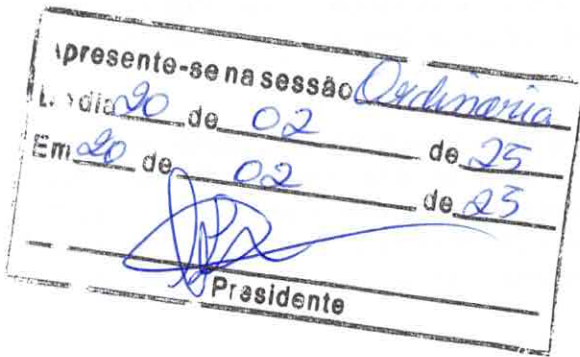 Apresente-se na sessão Ordinaria
dia 20 de 02 de 25
Em 20 de 02 de 25
Presidente